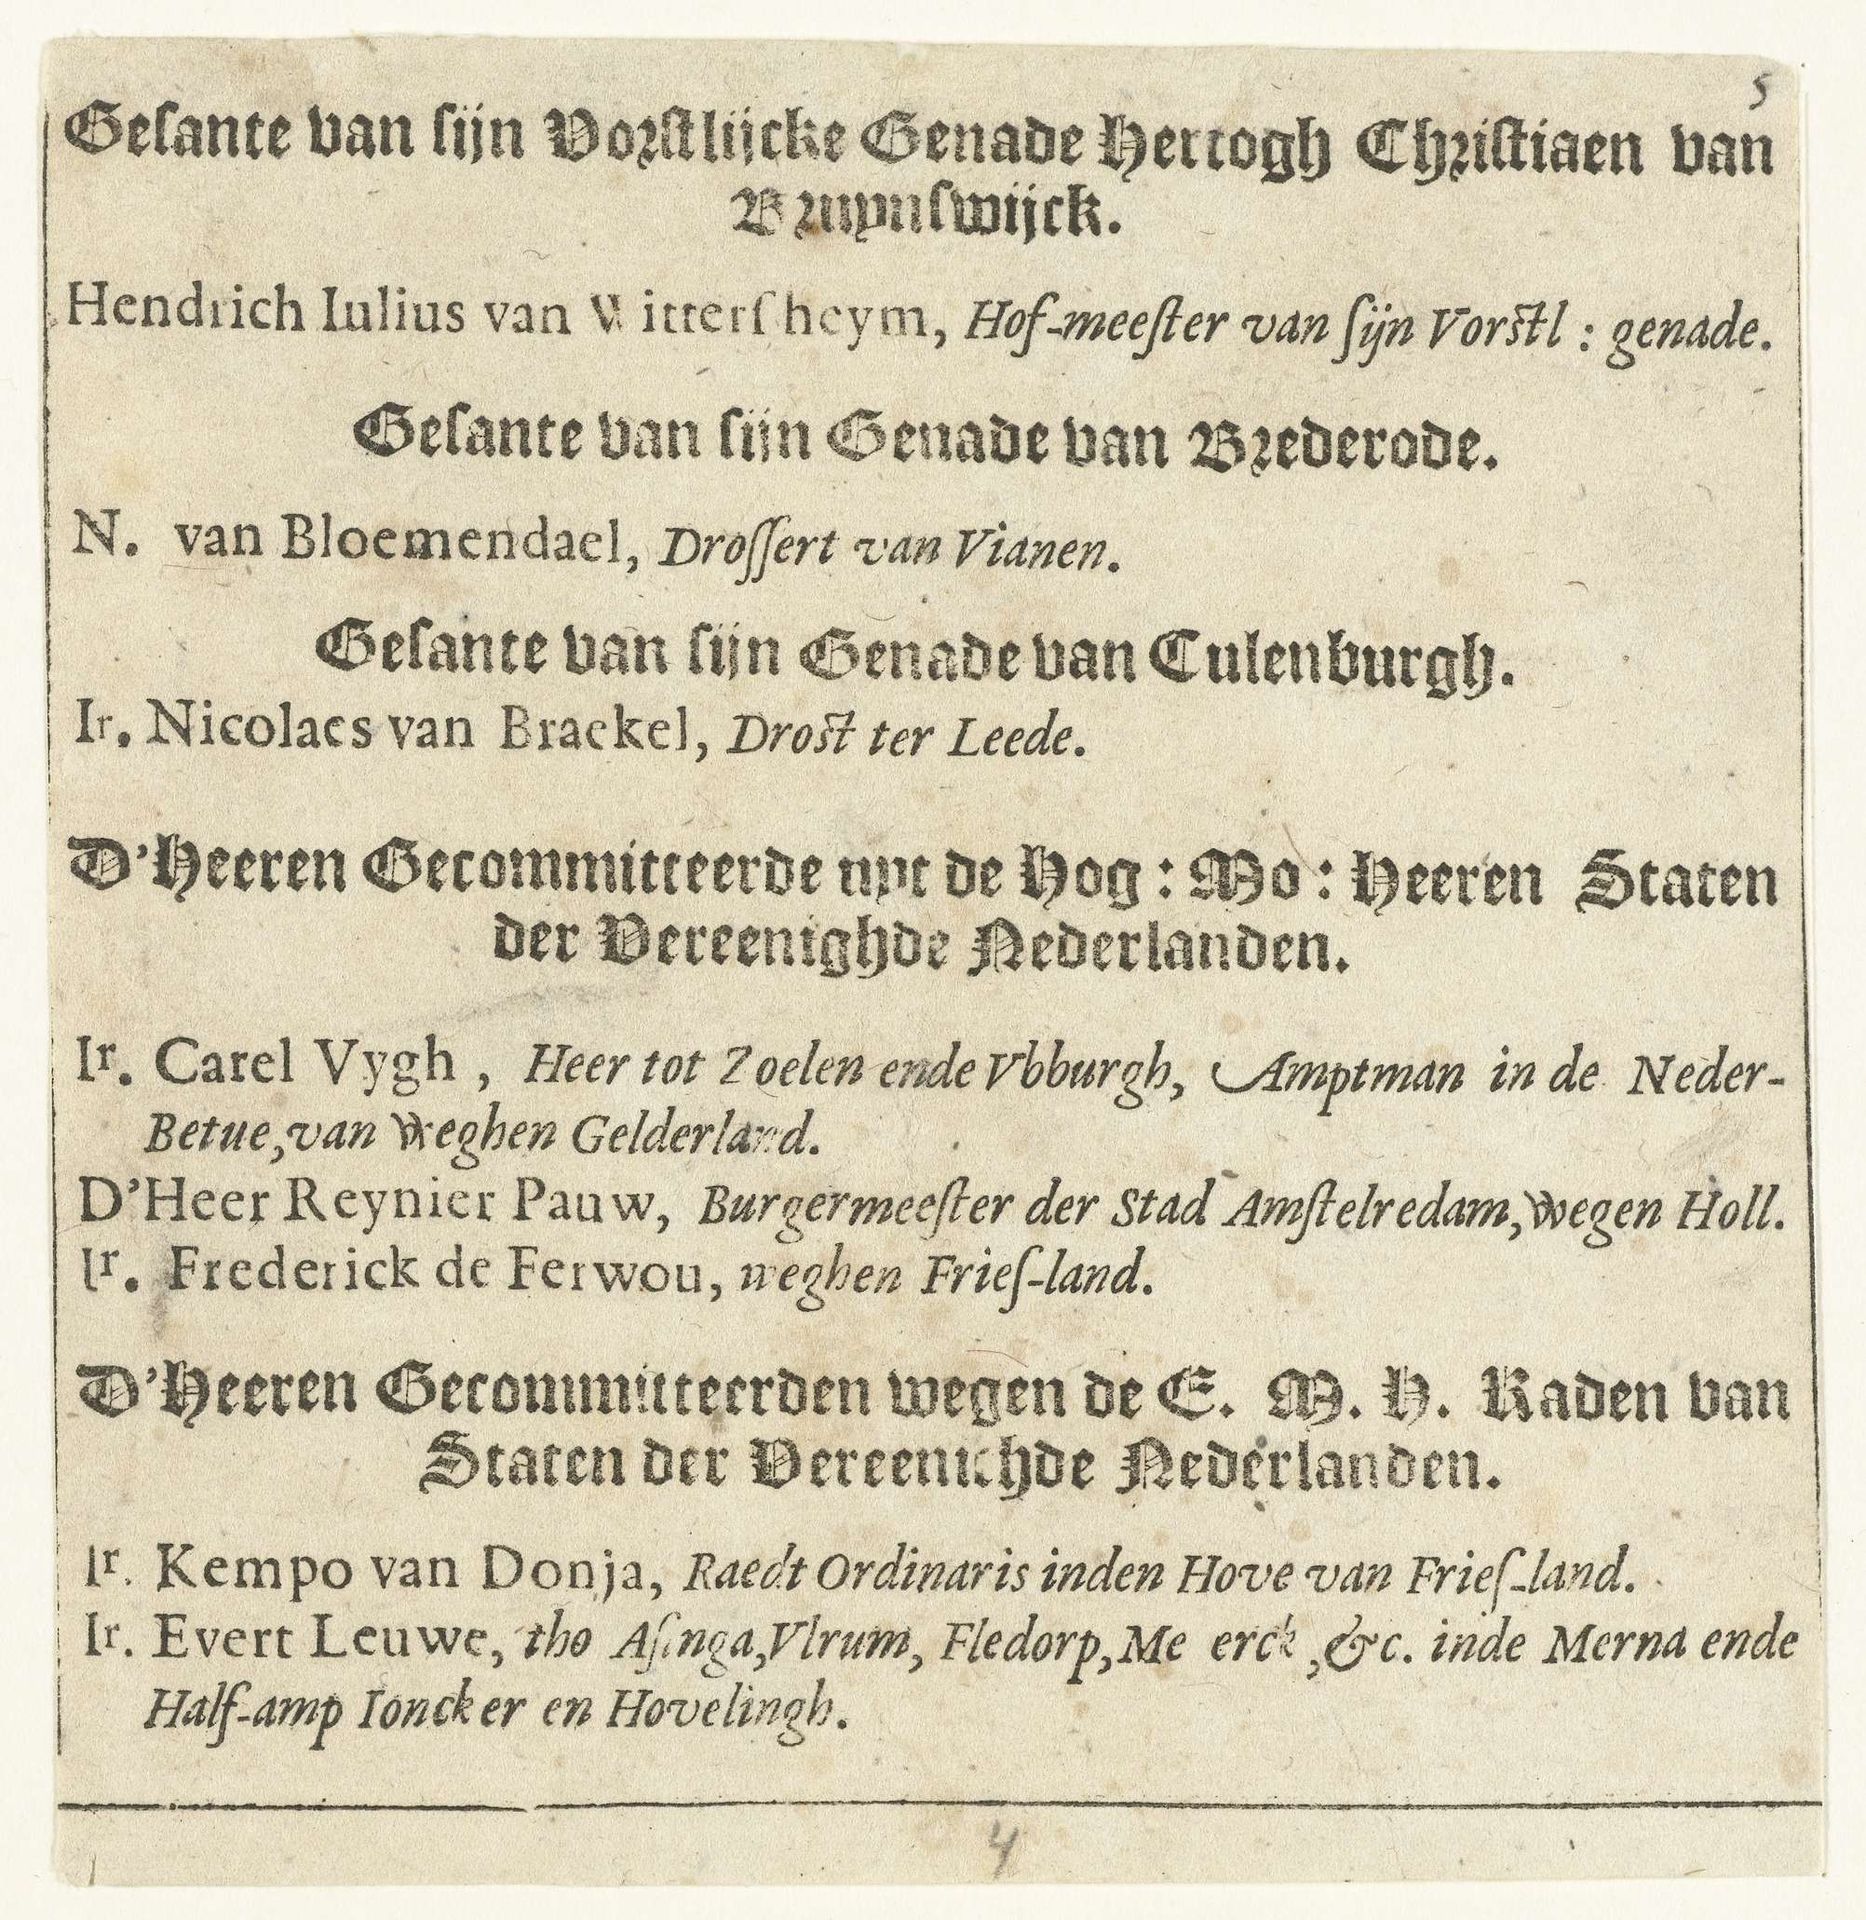 5
Gesante van sijn Vorstlijcke Genade Hertogh Christiaen van
Bruynswijck.
Hendrich Iulius van Wittersheym, Hof-meester van sijn Vorstl: genade.
Gesante van sijn Genade van Brederode.
N. van Bloemendael, Drossert van Vianen.
Gesante van sijn Genade van Culenburgh.
Ir. Nicolaes van Braekel, Drost ter Leede.
D'Heeren Gecommitteerde uyt de Hog: Mo: Heeren Staten
der Vereenighde Nederlanden.
Ir. Carel Vygh, Heer tot Zoelen ende Vbburgh, Amptman in de Neder-
Betue, van weghen Gelderland.
D'Heer Reynier Pauw, Burgermeester der Stad Amstelredam, wegen Holl.
Ir. Frederick de Ferwou, weghen Fries-land.
D'Heeren Gecommitteerden wegen de E. M. H. Raden van
Staten der Vereenichde Nederlanden.
Ir. Kempo van Donja, Raedt Ordinaris inden Hove van Fries-land.
Ir. Evert Leuwe, tho Asinga, Vlrum, Fledorp, &c. inde Merna ende
Half-amp Ioncker en Hovelingh.
4